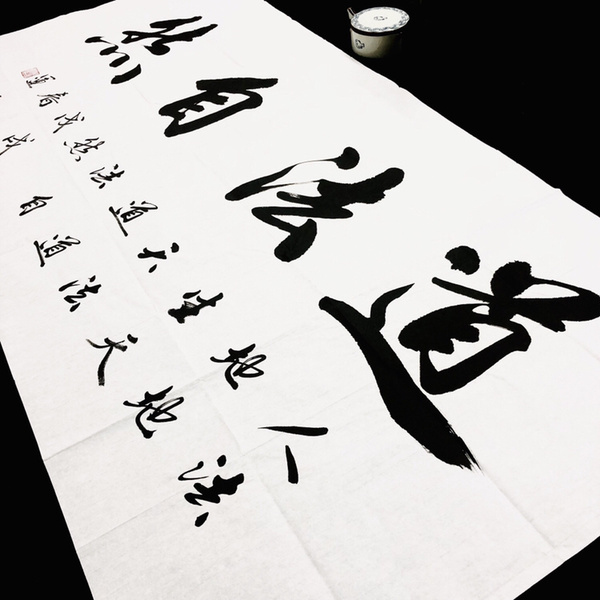 道法自然
人法
地地
法天
天法
道道
法自
然
戊戌
春